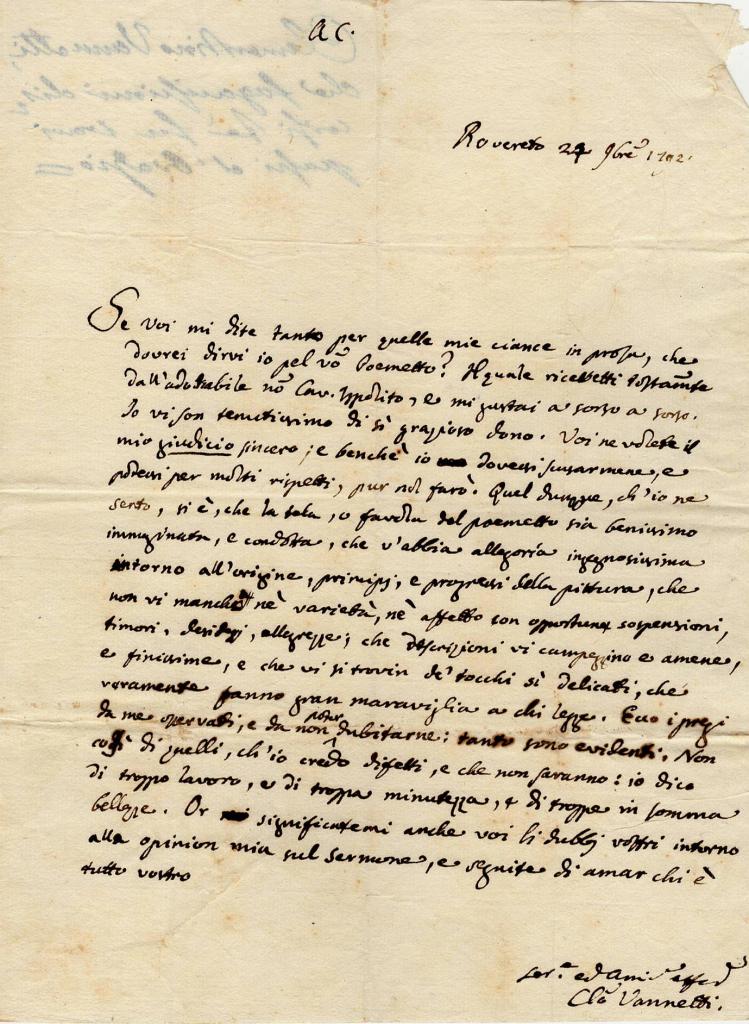 a c.
Rovereto 24 9bre 1792.
Se voi mi dite tanto per quelle mie ciance in prosa, che
dovrei dirvi io pel vo Poemetto? Il quale ricevetti tostamte
dall'adorabile no Cav. Ippolito, e mi gustai a sorso a sorso.
Io vi son tenutissimo di sì grazioso dono. Voi ne volete il
mio giudicio sincero; e benchè io dovessi scusarmene, e
potessi per molti rispetti, pur nol farò. Quel dunque, ch'io ne
sento, si è, che la tela, o favola del poemetto sia benissimo
immaginata, e condotta, che v'abbia allegoria ingegnosissima
intorno all'origine, principj, e progressi della pittura, che
non vi manchi nè varietà, nè affetto con opportune sospensioni,
timori, desiderj, allegrezze; che descrizioni vi campeggino e amene,
e finissime, e che vi si trovin de' tocchi sì delicati, che
veramente fanno gran maraviglia a chi legge. Ecco i pregi
da me osservati, e da non poter dubitarne: tanto sono evidenti. Non
così di quelli, ch'io credo difetti, e che non saranno: io dico
di troppo lavoro, e di troppa minutezza, e di troppe in somma
bellezze. Or significatemi anche voi li dubbj vostri intorno
alla opinion mia sul sermone, e seguite di amar chi è
tutto vostro
ser.e ed Amic
Cle Vannetti.